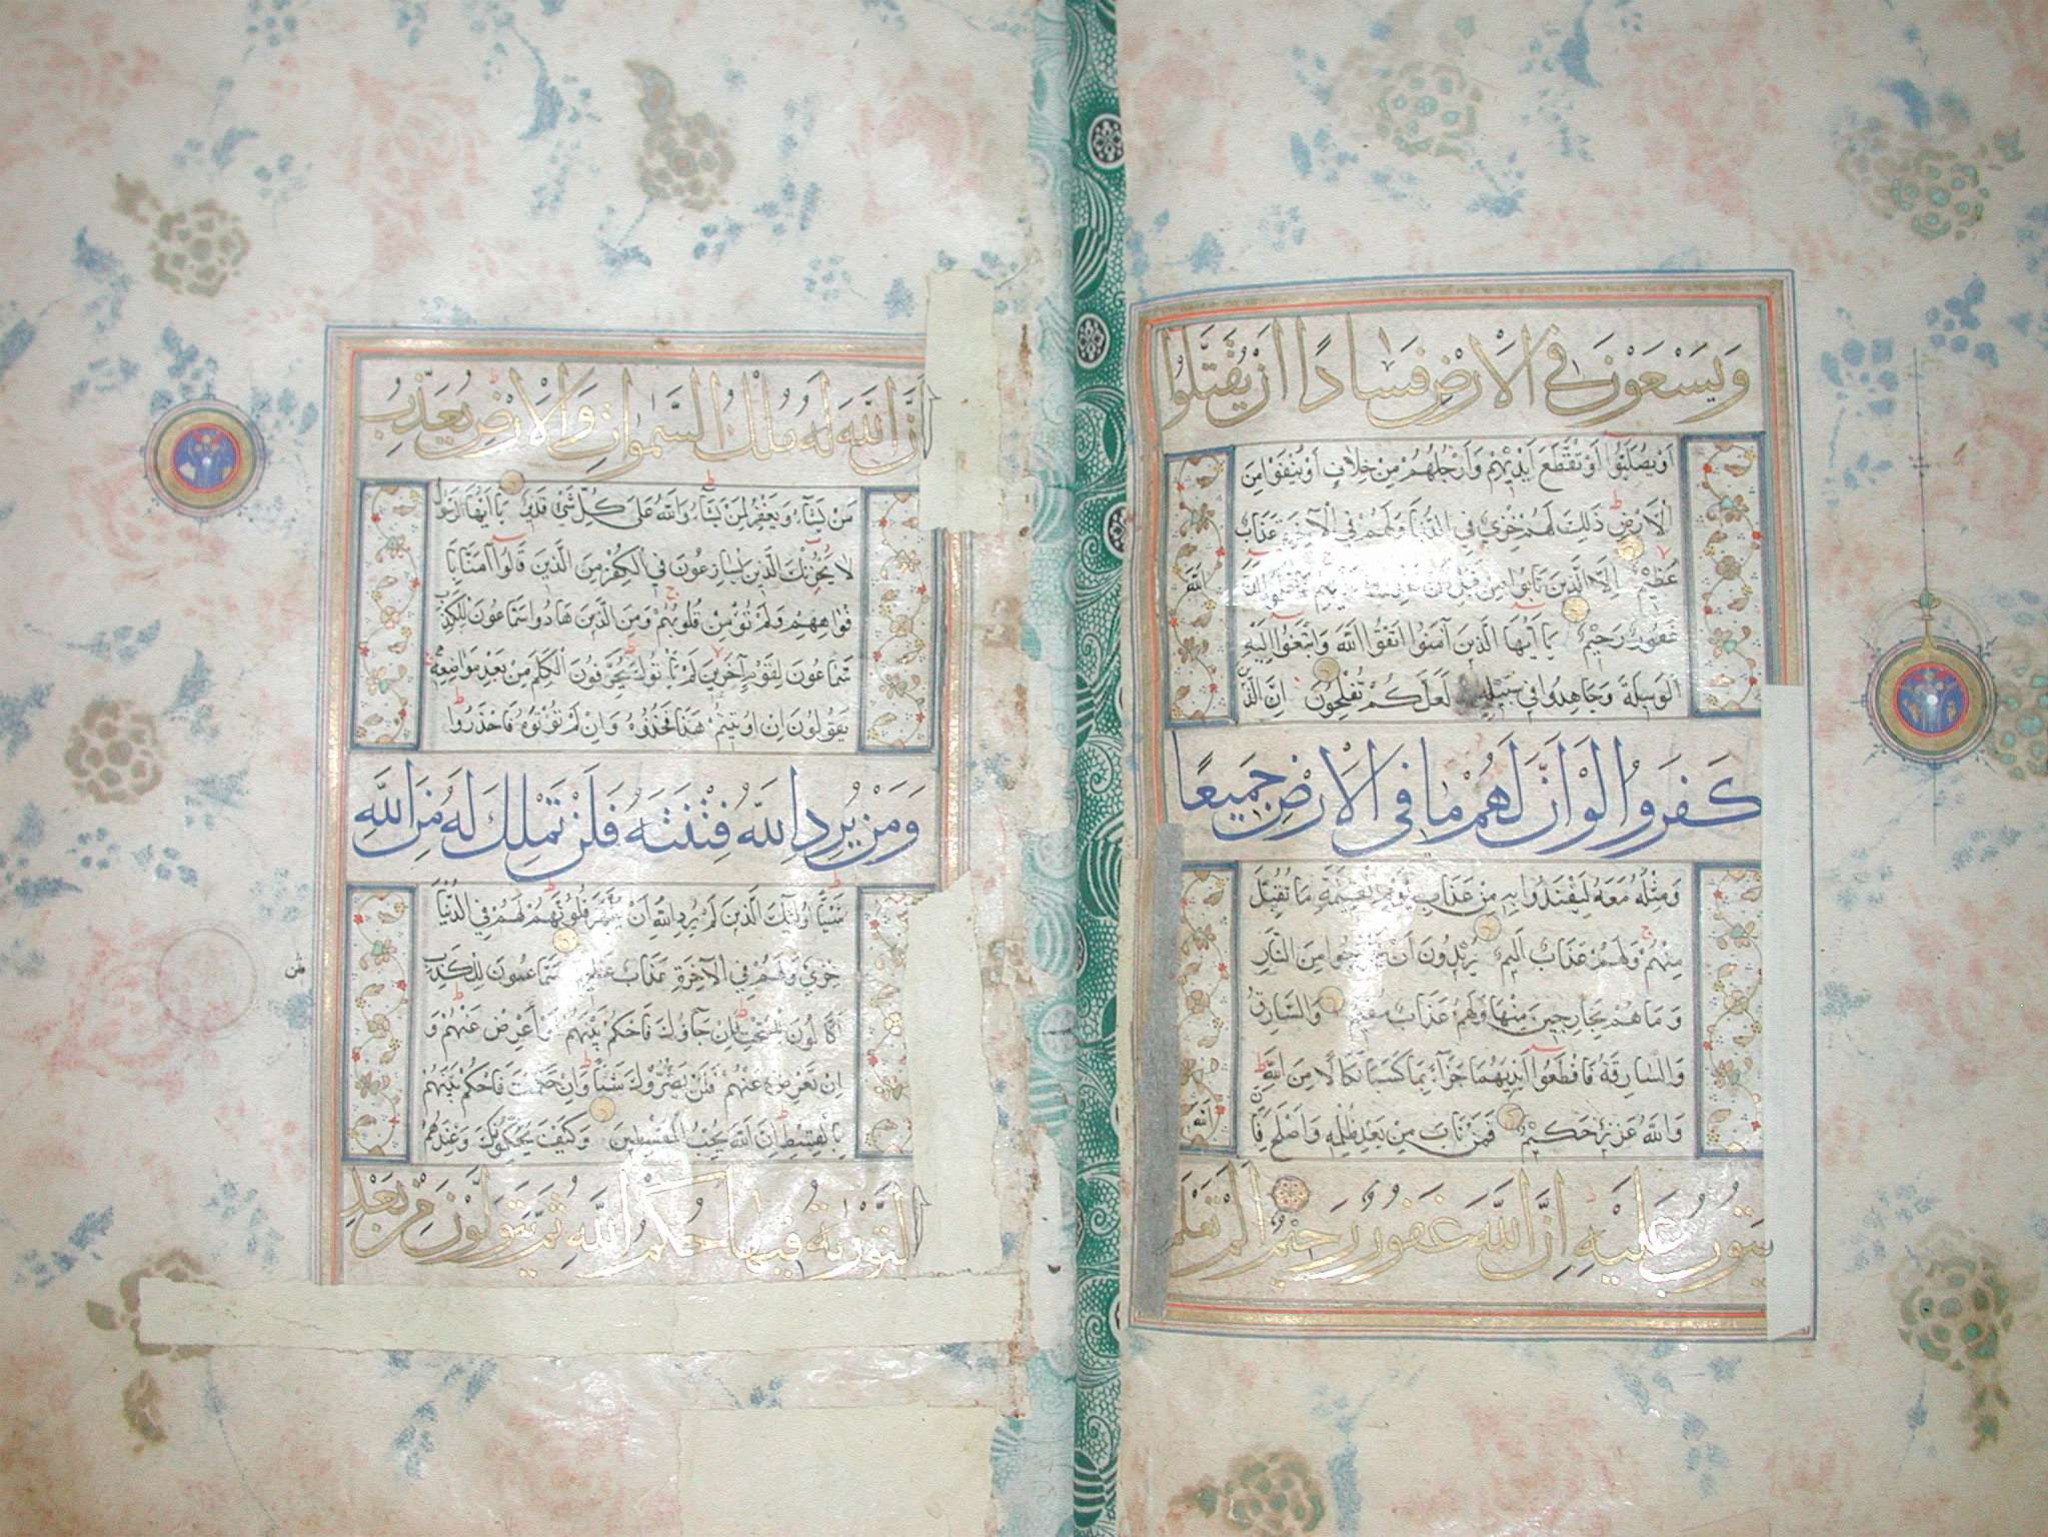 وَيَسْعَوْنَ فِي الْاَرْضِ فَسَادًا اَنْ يُقَتَّلُوا
اَوْ يُصَلَّبُوا اَوْ تُقَطَّعَ اَيْدِيهِمْ وَاَرْجُلُهُمْ مِنْ خِلَافٍ اَوْ يُنْفَوْا مِنَ
الْاَرْضِ ذَلِكَ لَهُمْ خِزْيٌ فِي الدُّنْيَا وَلَهُمْ فِي الْآخِرَةِ عَذَابٌ
عَظِيمٌ اِلَّا الَّذِينَ تَابُوا مِنْ قَبْلِ اَنْ اللَّهَ
غَفُورٌ رَحِيمٌ يَا اَيُّهَا الَّذِينَ آمَنُوا اتَّقُوا اللَّهَ وَابْتَغُوا اِلَيْهِ
الْوَسِيلَةَ وَجَاهِدُوا فِي سَبِيلِهِ لَعَلَّكُمْ تُفْلِحُونَ اِنَّ الَّذِينَ
كَفَرُوا لَوْ اَنَّ لَهُمْ مَا فِي الْاَرْضِ جَمِيعًا
وَمِثْلَهُ مَعَهُ لِيَفْتَدُوا بِهِ مِنْ عَذَابِ يَوْمِ الْقِيمَةِ مَا تُقُبِّلَ
مِنْهُمْ وَلَهُمْ عَذَابٌ اَلِيمٌ يُرِيدُونَ اَنْ يَخْرُجُوا مِنَ النَّارِ
وَمَا هُمْ بِخَارِجِينَ مِنْهَا وَلَهُمْ عَذَابٌ مُقِيمٌ وَالسَّارِقُ
وَالسَّارِقَةُ فَاقْطَعُوا اَيْدِيَهُمَا جَزَآءً بِمَا كَسَبَا نَكَالًا مِنَ اللَّهِ
وَاللَّهُ عَزِيزٌ حَكِيمٌ فَمَنْ تَابَ مِنْ بَعْدِ ظُلْمِهِ وَاَصْلَحَ فَاِنَّ اللَّهَ
يَتُوبُ عَلَيْهِ اِنَّ اللَّهَ غَفُورٌ رَحِيمٌ اَلَمْ تَعْلَمْ
اَنَّ اللَّهَ لَهُ مُلْكُ السَّمٰوَاتِ وَالْاَرْضِ يُعَذِّبُ
مَنْ يَشَآءُ وَيَغْفِرُ لِمَنْ يَشَآءُ وَاللَّهُ عَلَى كُلِّ شَيْءٍ قَدِيرٌ يَا اَيُّهَا الرَّسُولُ
لَا يَحْزُنْكَ الَّذِينَ يُسَارِعُونَ فِي الْكُفْرِ مِنَ الَّذِينَ قَالُوا آمَنَّا بِاَ
فْوَاهِهِمْ وَلَمْ تُؤْمِنْ قُلُوبُهُمْ وَمِنَ الَّذِينَ هَادُوا سَمَّاعُونَ لِلْكَذِبِ
سَمَّاعُونَ لِقَوْمٍ آخَرِينَ لَمْ يَأْتُوكَ يُحَرِّفُونَ الْكَلِمَ مِنْ بَعْدِ مَوَاضِعِهِ
يَقُولُونَ اِنْ اُوتِيتُمْ هَذَا فَخُذُوهُ وَاِنْ لَمْ تُؤْتَوْهُ فَاحْذَرُوا
وَمَنْ يُرِدِ اللَّهُ فِتْنَتَهُ فَلَنْ تَمْلِكَ لَهُ مِنَ اللَّهِ
شَيْئًا اُولَئِكَ الَّذِينَ لَمْ يُرِدِ اللَّهُ اَنْ يُطَهِّرَ قُلُوبَهُمْ لَهُمْ فِي الدُّنْيَا
خِزْيٌ وَلَهُمْ فِي الْآخِرَةِ عَذَابٌ عَظِيمٌ سَمَّاعُونَ لِلْكَذِبِ
اَكَّالُونَ لِلسُّحْتِ فَاِنْ جَآؤُكَ فَاحْكُمْ بَيْنَهُمْ اَوْ اَعْرِضْ عَنْهُمْ وَ
اِنْ تُعْرِضْ عَنْهُمْ فَلَنْ يَضُرُّوكَ شَيْئًا وَاِنْ حَكَمْتَ فَاحْكُمْ بَيْنَهُمْ
بِالْقِسْطِ اِنَّ اللَّهَ يُحِبُّ الْمُقْسِطِينَ وَكَيْفَ يُحَكِّمُونَكَ وَعِنْدَهُمُ
التَّوْرٰيةُ فِيهَا حُكْمُ اللَّهِ ثُمَّ يَتَوَلَّوْنَ مِنْ بَعْدِ